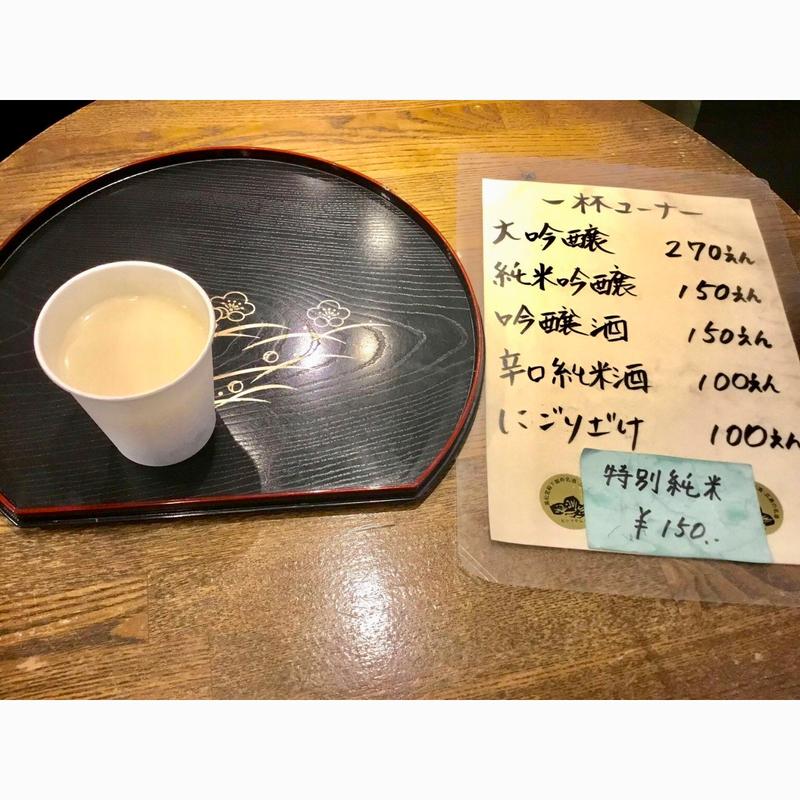 一杯コーナー
大吟醸 270えん
純米吟醸 150えん
吟醸酒 150えん
辛口純米酒 100えん
にごりざけ 100えん
特別純米
¥150..